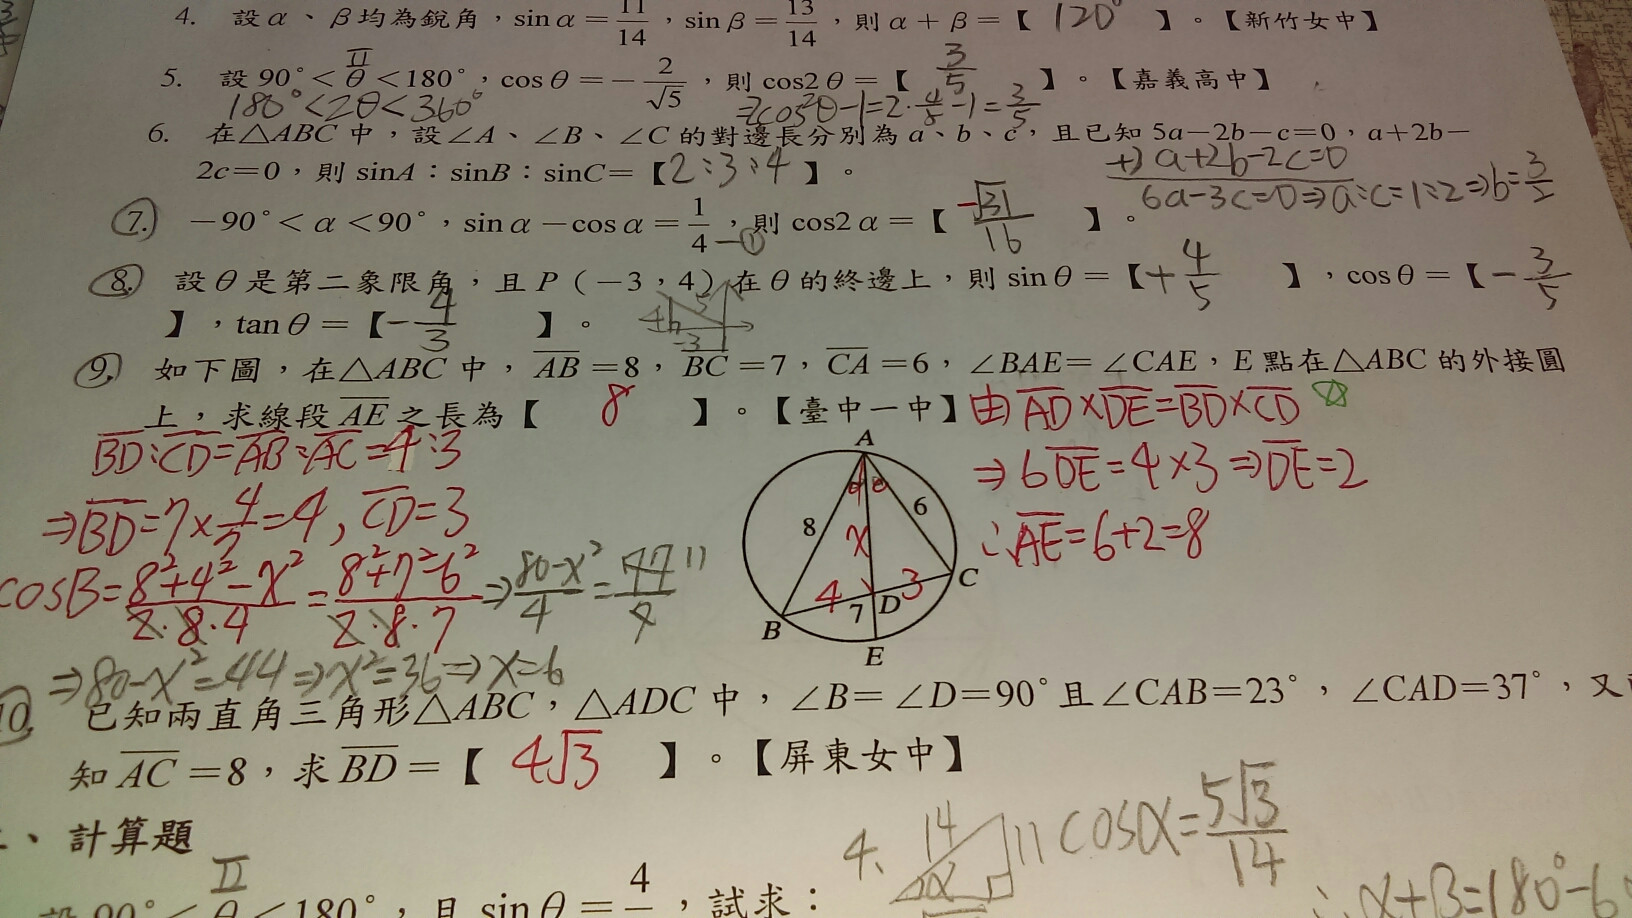 4. 設α、β均為銳角，sinα=11/14，sinβ=13/14，則α+β=【 120° 】。【新竹女中】
II
5. 設90°<θ<180°，cosθ=-2/√5，則cos2θ=【 3/5 】。【嘉義高中】
180°<2θ<360° ⇒2cos²θ-1=2·4/5-1=3/5
6. 在△ABC中，設∠A、∠B、∠C的對邊長分別為a、b、c，且已知5a-2b-c=0，a+2b-
2c=0，則sinA：sinB：sinC=【2:3:4】。
+) a+2b-2c=0
6a-3c=0⇒a:c=1:2⇒b=3/2
7. -90°<α<90°，sinα-cosα=1/4—①，則cos2α=【 -√31/16 】。
8. 設θ是第二象限角，且P(-3，4)在θ的終邊上，則sinθ=【+4/5 】，cosθ=【-3/5
】，tanθ=【-4/3 】。
4 5
-3
9. 如下圖，在△ABC中，AB=8，BC=7，CA=6，∠BAE=∠CAE，E點在△ABC的外接圓
上，求線段AE之長為【 8 】。【臺中一中】由AD×DE=BD×CD
BD:CD=AB:AC=4:3
⇒6DE=4×3⇒DE=2
⇒BD=7×4/7=4, CD=3
∴AE=6+2=8
cosB=8²+4²-x²/2·8·4=8²+7²-6²/2·8·7⇒80-x²/4=77/7 11
⇒80-x²=44⇒x²=36⇒x=6
A
8
6
x
4
3
7
B
C
D
E
10. 已知兩直角三角形△ABC，△ADC中，∠B=∠D=90°且∠CAB=23°，∠CAD=37°，又
知AC=8，求BD=【 4√3 】。【屏東女中】
、計算題
4. 14 11 α cosα=5√3/14
II
設90°<θ<180°，且sinθ=4，試求：
∴α+β=180°-6